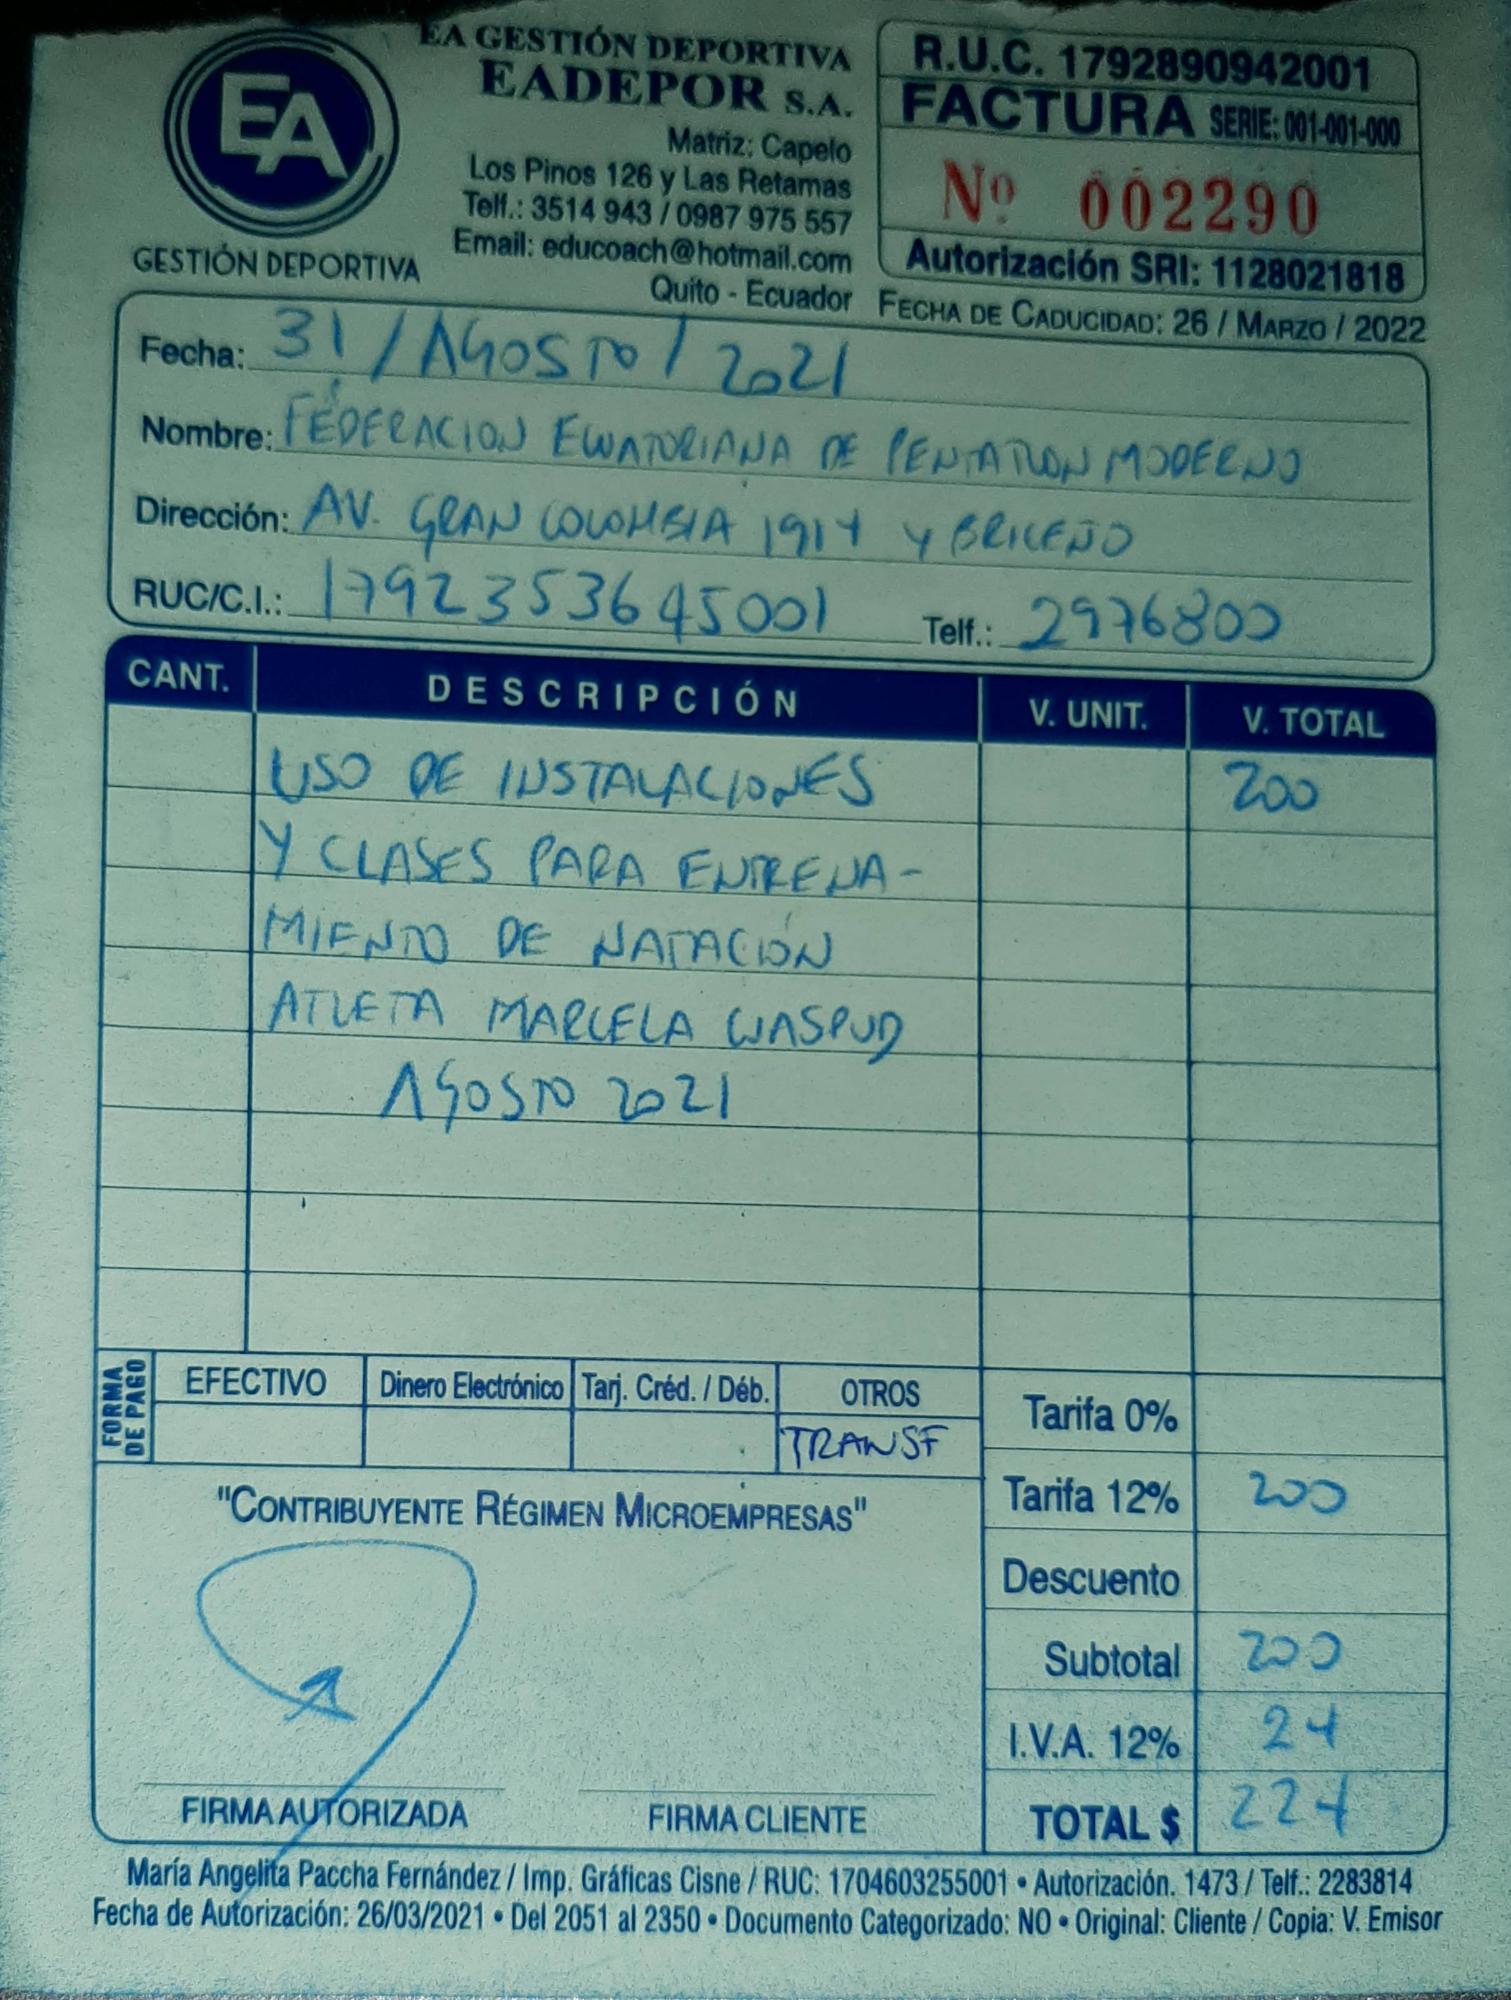 EA
GESTIÓN DEPORTIVA
EA GESTIÓN DEPORTIVA
EADEPOR S.A.
Matriz: Capelo
Los Pinos 126 y Las Retamas
Telf.: 3514 943 / 0987 975 557
Email: educoach@hotmail.com
Quito - Ecuador
R.U.C. 1792890942001
FACTURA SERIE: 001-001-000
Nº 002290
Autorización SRI: 1128021818
FECHA DE CADUCIDAD: 26 / MARZO / 2022
Fecha: 31 / AGOSTO / 2021
Nombre: FEDERACION ECUATORIANA DE PENTATLON MODERNO
Dirección: AV. GRAN COLOMBIA 1914 Y BRICEÑO
RUC/C.I.: 1792353645001 Telf.: 2976800
CANT. DESCRIPCIÓN V. UNIT. V. TOTAL
USO DE INSTALACIONES 200
Y CLASES PARA ENTRENA-
MIENTO DE NATACIÓN
ATLETA MARCELA CUASPUD
AGOSTO 2021
FORMA
DE PAGO
EFECTIVO Dinero Electrónico Tarj. Créd. / Déb. OTROS
TRANSF
Tarifa 0%
Tarifa 12% 200
Descuento
Subtotal 200
I.V.A. 12% 24
TOTAL $ 224
"CONTRIBUYENTE RÉGIMEN MICROEMPRESAS"
FIRMA AUTORIZADA FIRMA CLIENTE
María Angelita Paccha Fernández / Imp. Gráficas Cisne / RUC: 1704603255001 • Autorización. 1473 / Telf.: 2283814
Fecha de Autorización: 26/03/2021 • Del 2051 al 2350 • Documento Categorizado: NO • Original: Cliente / Copia: V. Emisor